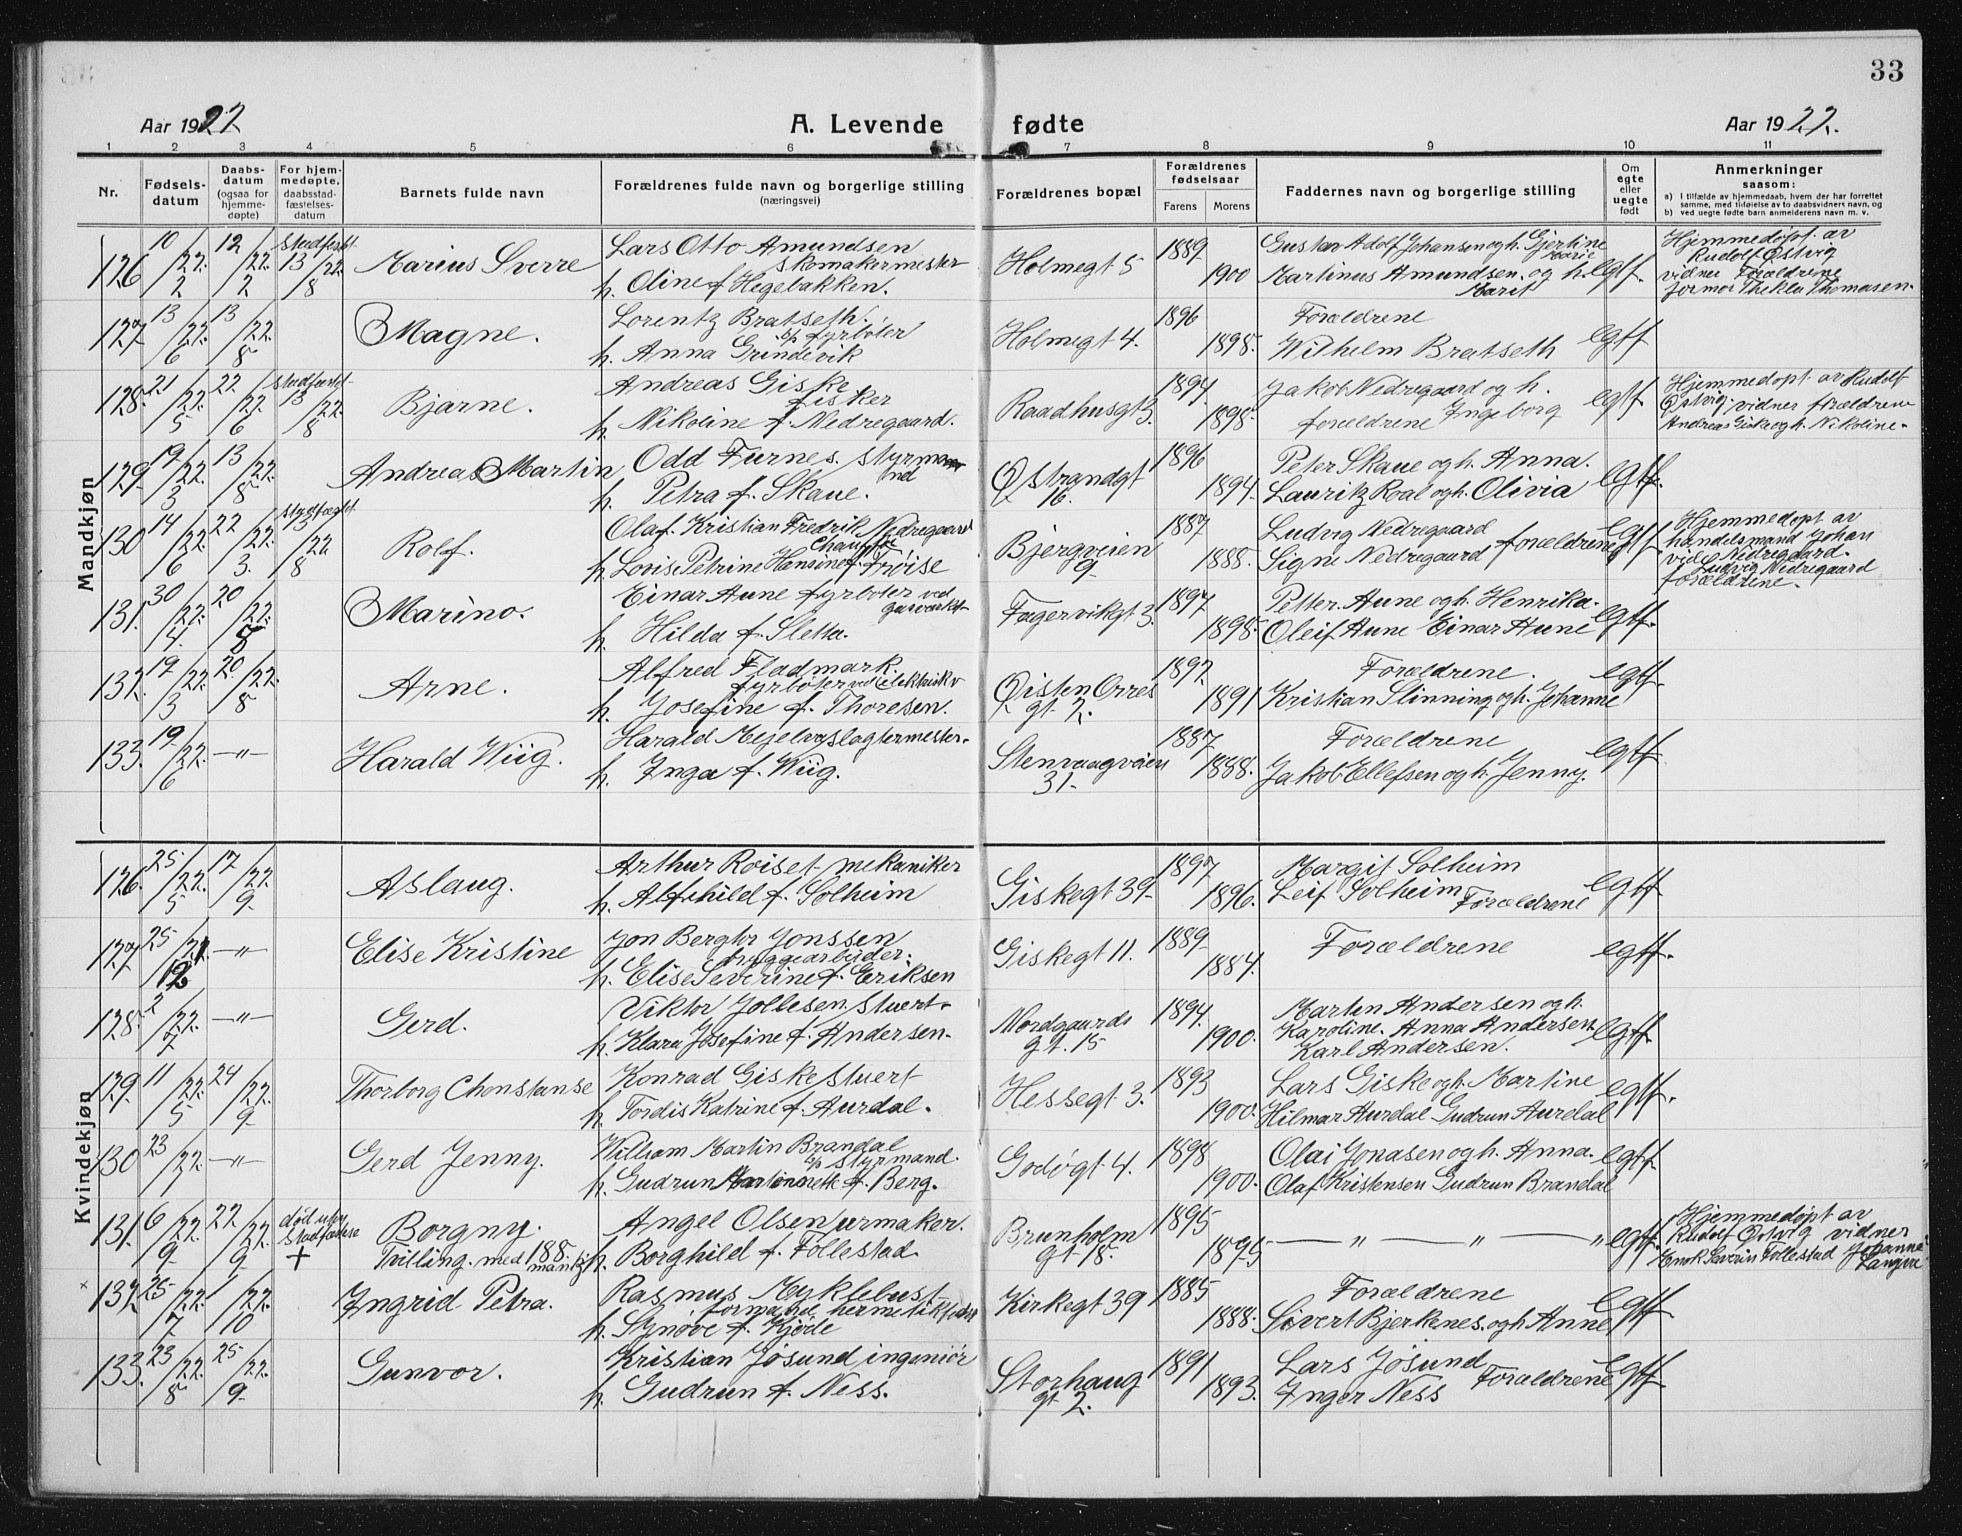 33
Aar 1922
A. Levende fødte
Aar 1922.
1 2 3 4 5 6 7 8 9 10 11
Nr.
Fødsels-
datum
Daabs-
datum
(ogsaa for
hjemme-
døpte)
For hjem-
medøpte,
daabsstad-
fæstelses-
datum
Barnets fulde navn
Forældrenes fulde navn og borgerlige stilling
(næringsvei)
Forældrenes bopæl
Forældrenes
fødselsaar
Farens Morens
Faddernes navn og borgerlige stilling
Om
egte
eller
uegte
født
Anmerkninger
saasom:
a) I tilfælde av hjemmedaab, hvem der har forrettet
samme, med tilføielse av to daabsvidners navn, og
b) ved uegte fødte barn anmelderens navn m. v.
Mandkjøn
126 10/22. 2 12/22. 2 stadfæst 13/22. 8
Marius Sverre
Lars Otto Amundsen
skomakermester
h. Oline f Hegebakken.
Holmegt 5
1889
1900
Gustav Adolf Johansen og h. Gjertine
Marie
Martinus Amundsen og h.
Marit
egtf.
Hjemmedøpt av
Rudolf Østvig
vidner Forældrene
formor Thekla Thomasen.
127 13/22. 6 13/22. 8
Magne.
Lorentz Bratseth.
fyrbøter
h. Anna Grindevik
Holmegt 4.
1896
1898.
Forældrene
Wilhelm Bratseth
egtf
128. 21/22. 5 22/22. 6 stadfæstet 13/22. 8
Bjarne.
Andreas Giske
fisker
h. Nikoline f. Nedregaard.
Raadhusgt 3.
1894
1898.
Jakob Nedregaard og h.
forældrene Ingeborg
egtf
Hjemmedøpt av Rudolf
Østvig. vidner forældrene
Andreas Giske og h. Nikoline.
129. 19/22. 3 13/22. 8
Andreas Martin
Odd Furnes. styrmand
h. Petra f. Skaue.
Østrandgt
16.
1896
1894.
Peter Skaue og h. Anna.
Lauritz Roal og h. Olivia
egtf.
130 14/22. 6 22/22. 3. stadfæstet 13/22. 8
Rolf.
Olaf Kristian Fredrik Nedregaard
Chauffør
h. Lovise Petrine Hansine f. Frøise
Bjergveien
9.
1887
1888.
Ludvig Nedregaard
Signe Nedregaard forældrene
egtf
Hjemmedøpt av
handelsmand Johan
Nedregaard.
vid Ludvig Nedregaard
forældrene.
131. 30/22. 4. 20/22. 8
Marino.
Einar Aune fyrbøter ved
gasverket
h. Hilda f. Sletta.
Fagervikgt 3.
1897
1898.
Petter Aune og h. Henrika.
Oleif Aune Einar Aune
egtf.
132. 19/22. 3 20/22. 8
Arne.
Alfred Fladmark.
fyrbøter ved elektrisk v
h. Josefine f. Thoresen.
Øisten Orres
gt 2.
1892
1891
Forældrene.
Kristian Slinning og h. Johanne
egtf.
133. 19/22. 6 —"—
Harald Wiig.
Harald Mejelva slagtermester.
h. Inga f. Wiig.
Stenvaagveien
31.
1887
1888.
Forældrene
Jakob Ellefsen og h. Jenny.
egtf
Kvindekjøn
126. 25/22. 5 17/22. 9
Aslaug.
Arthur Roiset mekaniker
h. Alfhild f. Solheim
Giskegt 39.
1897
1896.
Margit Solheim
Leif Solheim Forældrene
egtf
127 25/21 12 —"—
Elise Kristine
Jon Bergtor Jonssen
bryggearbeider.
h. Elise Severine f. Eriksen
Giskegt 11.
1889
1884.
Forældrene
egtf.
128. 2/22. 7 —"—
Gerd.
Viktor Jollesen. stuert.
h. Klara Josefine f. Andersen.
Nordgaards
gt. 15
1894.
1900.
Marten Andersen og h.
Karoline. Anna Andersen
Karl Andersen.
egtf.
129 11/22. 5 24/22. 9
Thorborg Chonstanse
Konrad Giske stuert
h. Tordis Katrine f. Aurdal.
Hessegt 3.
1893
1900.
Lars Giske og h. Martine
Hilmar Aurdal Gudrun Aurdal
egtf.
130 23/22. 7 —"—
Gerd Jenny.
William Martin Brandal
styrmand.
h. Gudrun Martinnette f. Berg.
Godøgt 4.
1898
1900.
Olai Jonasen og h. Anna.
Olaf Kristensen Gudrun Brandal
egtf
131. 6/22. 9. 22/22. 9. død uten
stadfæstelse
+
Borgny.
Tvilling. med 188.
mankj.
Angel Olsen urmaker.
h. Borghild f. Follestad.
Brunholm
gt 18.
1895
1895
—"— —"— —"
egtf.
Hjemmedøpt av
Rudolf Østvig vidner
Enok Severin Follestad Johanne
132 25/22. 7 1/22. 10
Ingrid Petra.
Rasmus Myklebust
formand hermetikfabr
h. Synøve f. Kjøde
Kirkegt 39
1885
1888.
Forældrene
Sivert Bjerkenes. og h Anne
egtf
133. 23/22. 8 25/22. 9.
Gunvor.
Kristian Jøsund ingeniør
h. Gudrun f. Ness.
Storhaug
gt 2.
1891
1893.
Lars Jøsund
Inger Ness Forældrene
egtf.